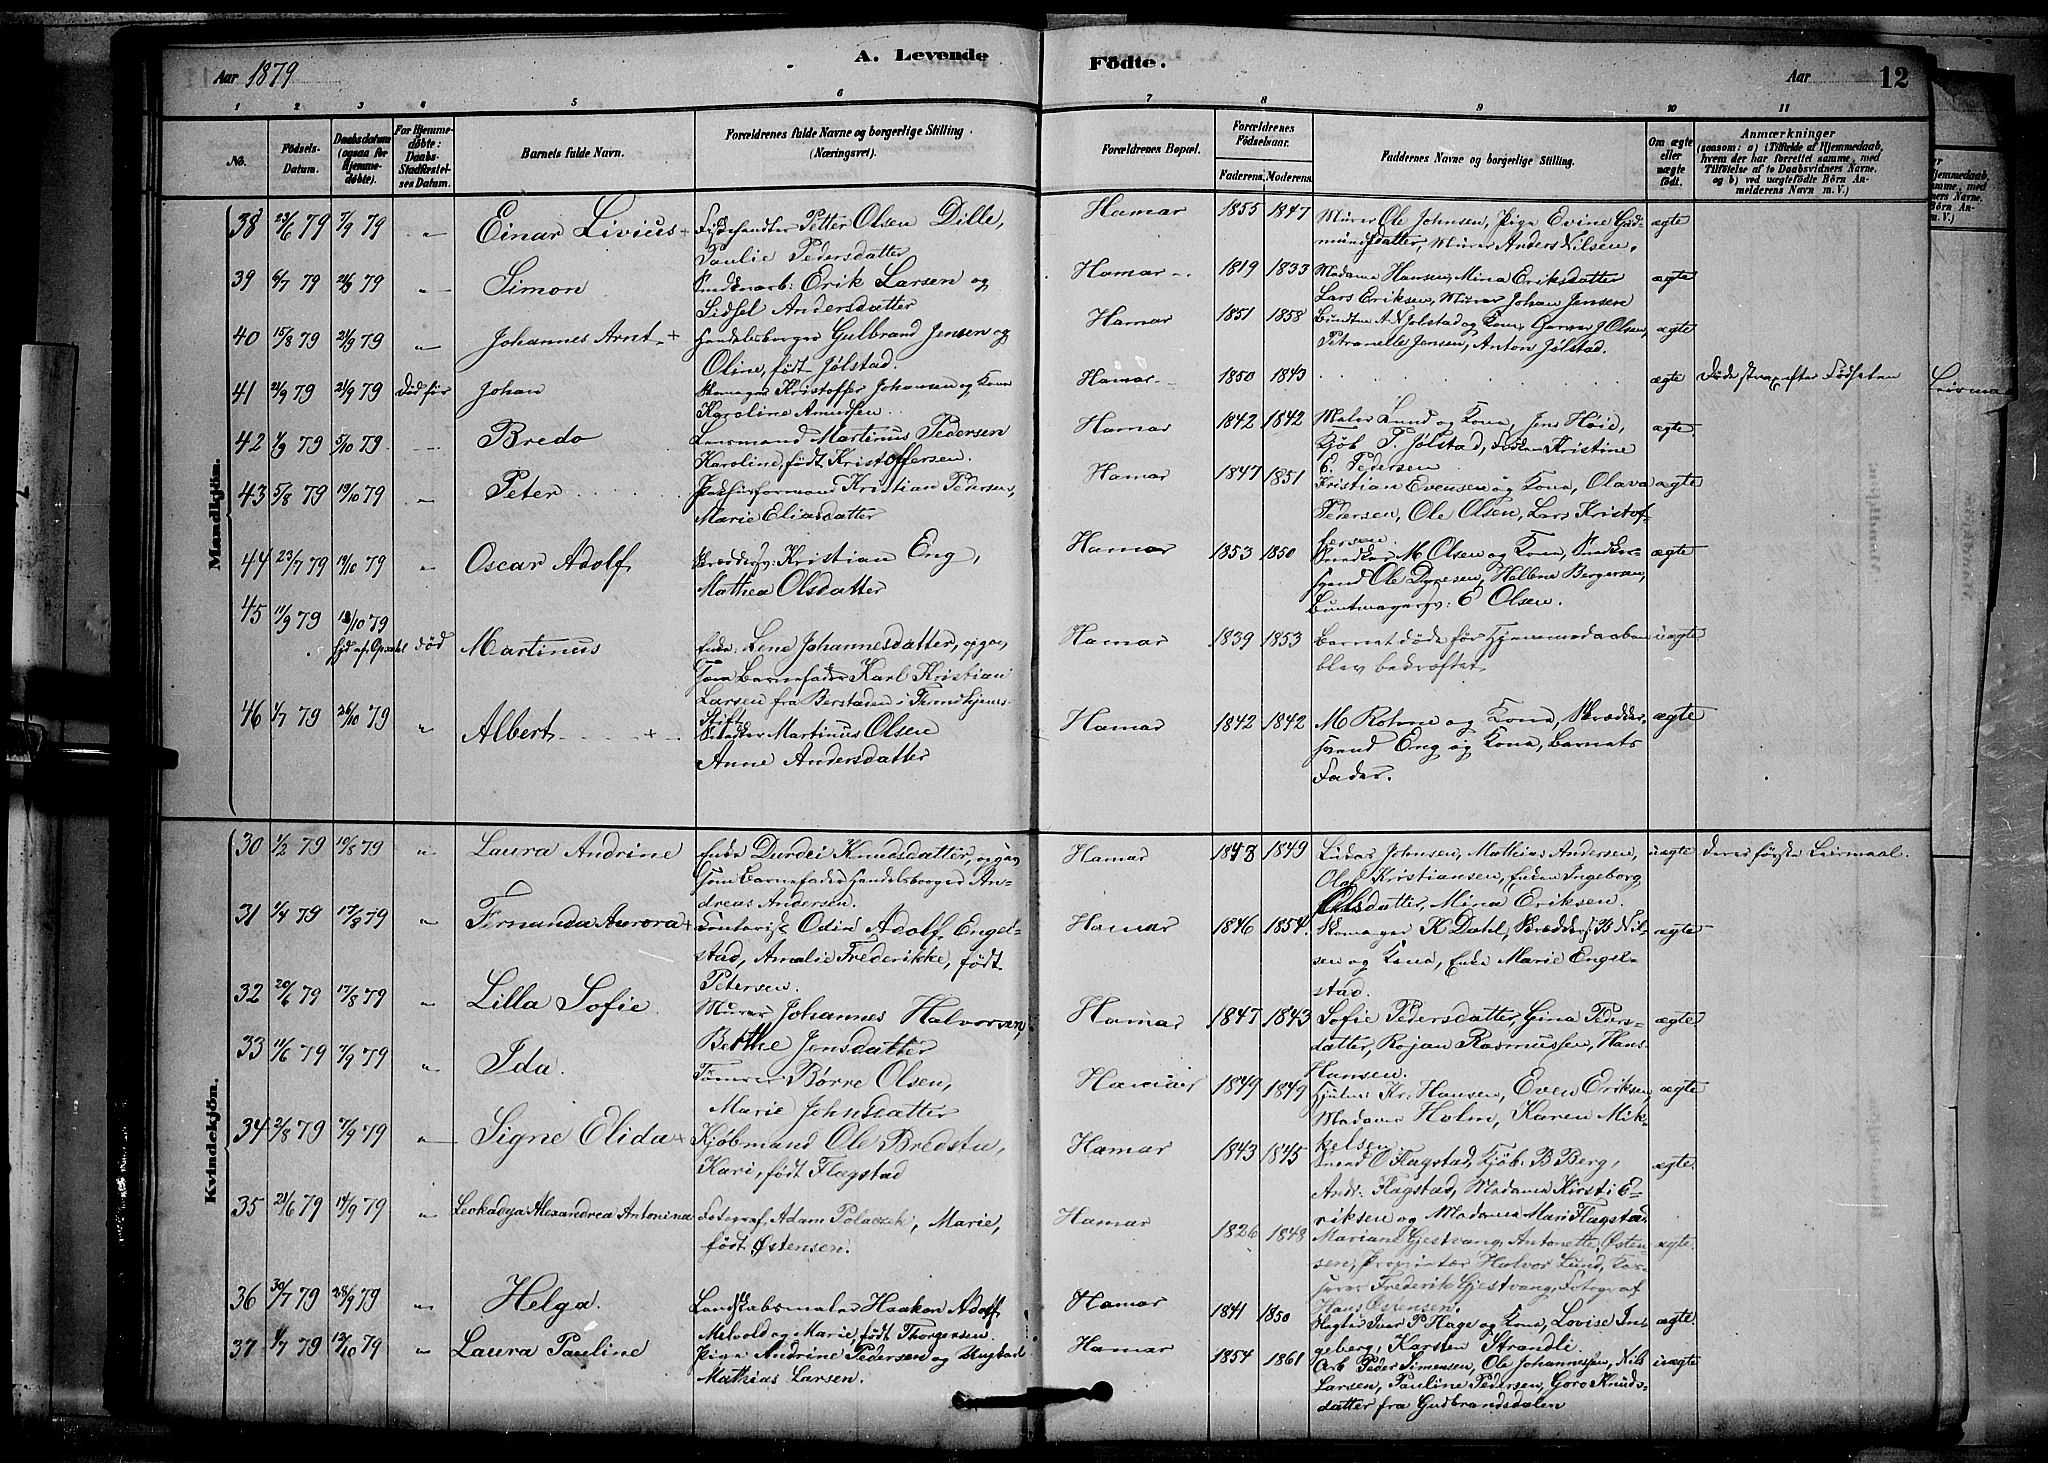 A. Levende
Födte.
Aar 1879
Aar
12
1 2 3 4 5 6 7 8 9 10 11
No.
Födsels-Datum.
Daabsdatum (ogsaa for Hjemmedöbte).
For Hjemmedöbte: Daabs-Stadfæstelses Datum.
Barnets fulde Navn.
Forældrenes fulde Navne og borgerlige Stilling (Næringsvei).
Forældrenes Bopæl.
Forældrenes Födselsaar.
Faderens. Moderens.
Faddernes Navne og borgerlige Stilling.
Om ægte eller uægte födt.
Anmærkninger
(saasom: a) i Tilfælde af Hjemmedaab,
hvem der har forrettet samme, med
Tilföielse af to Daabsvidners Navne.
og b) ved uægtefödte Börn An-
melderens Navn m. V.)
Mandkjön.
38 23/6 79 7/9 79 " Einar Livius + Petter Olsen Dille, Hamar 1855 1847 Murer Ole Johnsen, Pige Evine Gud- ægte
Paulie Pedersdatter mundsdatter, Murer Anders Nilsen.
39 6/7 79 21/9 79 " Simon Erik Larsen og Hamar 1819 1833 Madame Hansen, Mina Eriksdatter ægte
Sidsel Andersdatter Lars Eriksen, Murer Johan Jensen
40 15/8 79 21/9 79 " Johannes Arnt + Handelsborger Gulbrand Jensen og Hamar 1851 1858 Jølstad og Kone, J Olsen, ægte
Oline, født Jølstad. Petronelle Jensen, Anton Jølstad.
41 21/9 79 21/9 79 Død før Johan Skomager Kristoffer Johansen og Kone Hamar 1850 1843 ægte Døde strax efter Fødselen
Karoline Amundsen
42 1/9 79 5/10 79 Bredo Lensmand Martinus Pedersen Hamar 1842 1842 Maler Lund og Kone, Jens Høie, ægte
Karoline, født Kristoffersen. Kjøb. P. Jølstad, Kristine
E. Pedersen
43 5/8 79 19/10 79 " Peter Kristian Pedersen, Hamar 1847 1851 Kristian Evensen og Kone, Olava ægte
Marie Eliasdatter Pedersen, Ole Olsen, Lars Kristof-
fersen.
44 23/7 79 19/10 79 " Oscar Adolf Kristian Eng, Hamar 1853 1850 Snedker M Olsen og Kone, Snedker- ægte
Mathea Olsdatter svend Ole Dyresen, Hellene Bergersen,
Buntmagersv: E Olsen.
45 11/9 79 /10 79
død Martinus Enke: Lene Johannesdatter, opga, Hamar 1839 1853 Barnet døde før Hjemmedaaben uægte
som Barnefader Karl Kristian blev bedræftet
Larsen fra i Trondhjems
Stift
46 1/7 79 26/10 79 " Albert + Snedker Martinus Olsen Hamar 1842 1842 M Rohne og Kone, Skrædder- ægte
Anne Andersdatter svend Eng og Kone, Barnets
Fader.
Kvindekjön.
30 1/2 79 10/8 79 " Laura Andrine Enke Durdei Knudsdatter, opgav Hamar 1848 1849 Johnsen, Mathias Andersen, uægte deres første Leiermaal.
som Barnefader Handelsborger An- Olaf Kristiansen, Enken Ingeborg
dreas Andersen. Olsdatter, Mina Eriksen.
31 1/4 79 17/8 79 " Fernanda Aurora + Kontorist Odin Adolf Engel- Hamar 1846 1854 Skomager K Dahl, Nil- ægte
stad, Amalie Frederikke, født sen og Kone, Enke Marie Engel-
Petersen. stad.
32 20/6 79 17/8 79 " Lilla Sofie Murer Johannes Halvorsen, Hamar 1847 1843 Sofie Pedersdatter, Gina Peders- ægte
Berthe Jensdatter datter, Rojan Rasmussen, Hans
Hansen.
33 11/6 79 7/9 79 " Ida. Tømrer Børre Olsen, Hamar 1849 1849 Kr: Hansen, Even Eriksen, ægte
Marie Johnsdatter Madame Holm, Karen Mik-
kelsen
34 2/8 79 7/9 79 " Signe Elida + Kjøbmand Ole Bredstu, Hamar 1843 1845 Smed O Flagstad, Kjøb: B Berg, ægte.
Kari, født Flagstad Andr: Flagstad, Madame Kirsti E-
riksen og Madame Mari Flagstad.
35 21/6 79 14/9 79 " Leokadya Alexandrea Antonina Fotograf, Adam Polaczek, Marie, Hamar 1826 1848 Mariane Gjestvang, Antonette Østen- ægte.
født Østensen. sen, Proprietær Halvor Lund, Kas-
serer Frederik Gjestvang, Fotograf
Hans Østensen.
36 30/7 79 28/9 79 " Helga. Landskabsmaler Haakon Adolf Hamar 1841 1850 Slagter Iver P Hage og Kone, Lovise In- ægte
Melvold og Marie, født Thorgersen. geberg, Karsten Strandli.
37 1/7 79 12/10 79 " Laura Pauline Pige Andrine Pedersen og Ungkarl Hamar 1854 1861 Arb Peder Simensen, Ole Johannesen, Nils uægte
Mathias Larsen. Larsen, Pauline Pedersen, Goro Knuds-
datter fra Gudbrandsdalen